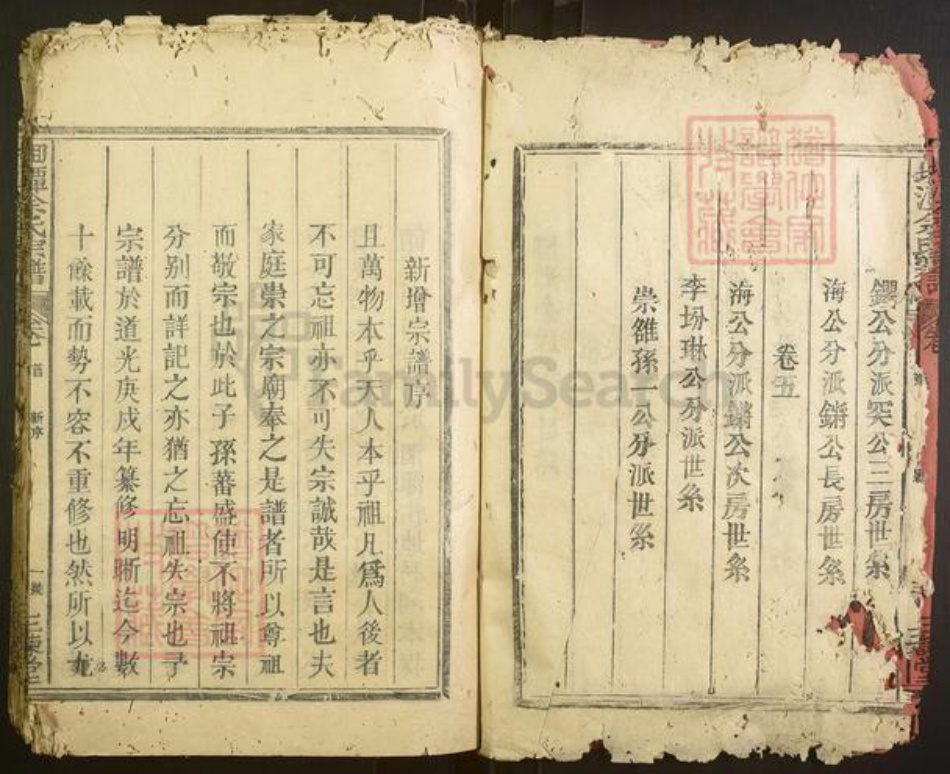 鐸公分派奕公三房世系
海公分派鏘公長房世系
卷五
海公分派鏘公次房世系
李坋琳公分派世系
崇雒孫一公分派世系
新增宗譜序
且萬物本乎天人本乎祖凡爲人後者
不可忘祖亦不可失宗誠哉是言也夫
家庭崇之宗廟奉之是譜者所以尊祖
而敬宗也於此子孫蕃盛使不將祖宗
分別而詳記之亦猶之忘祖失宗也予
宗譜於道光庚戍年纂修明晰迄今數
十餘載而勢不容不重修也然所以
氏宗譜
新序
FamilySearch